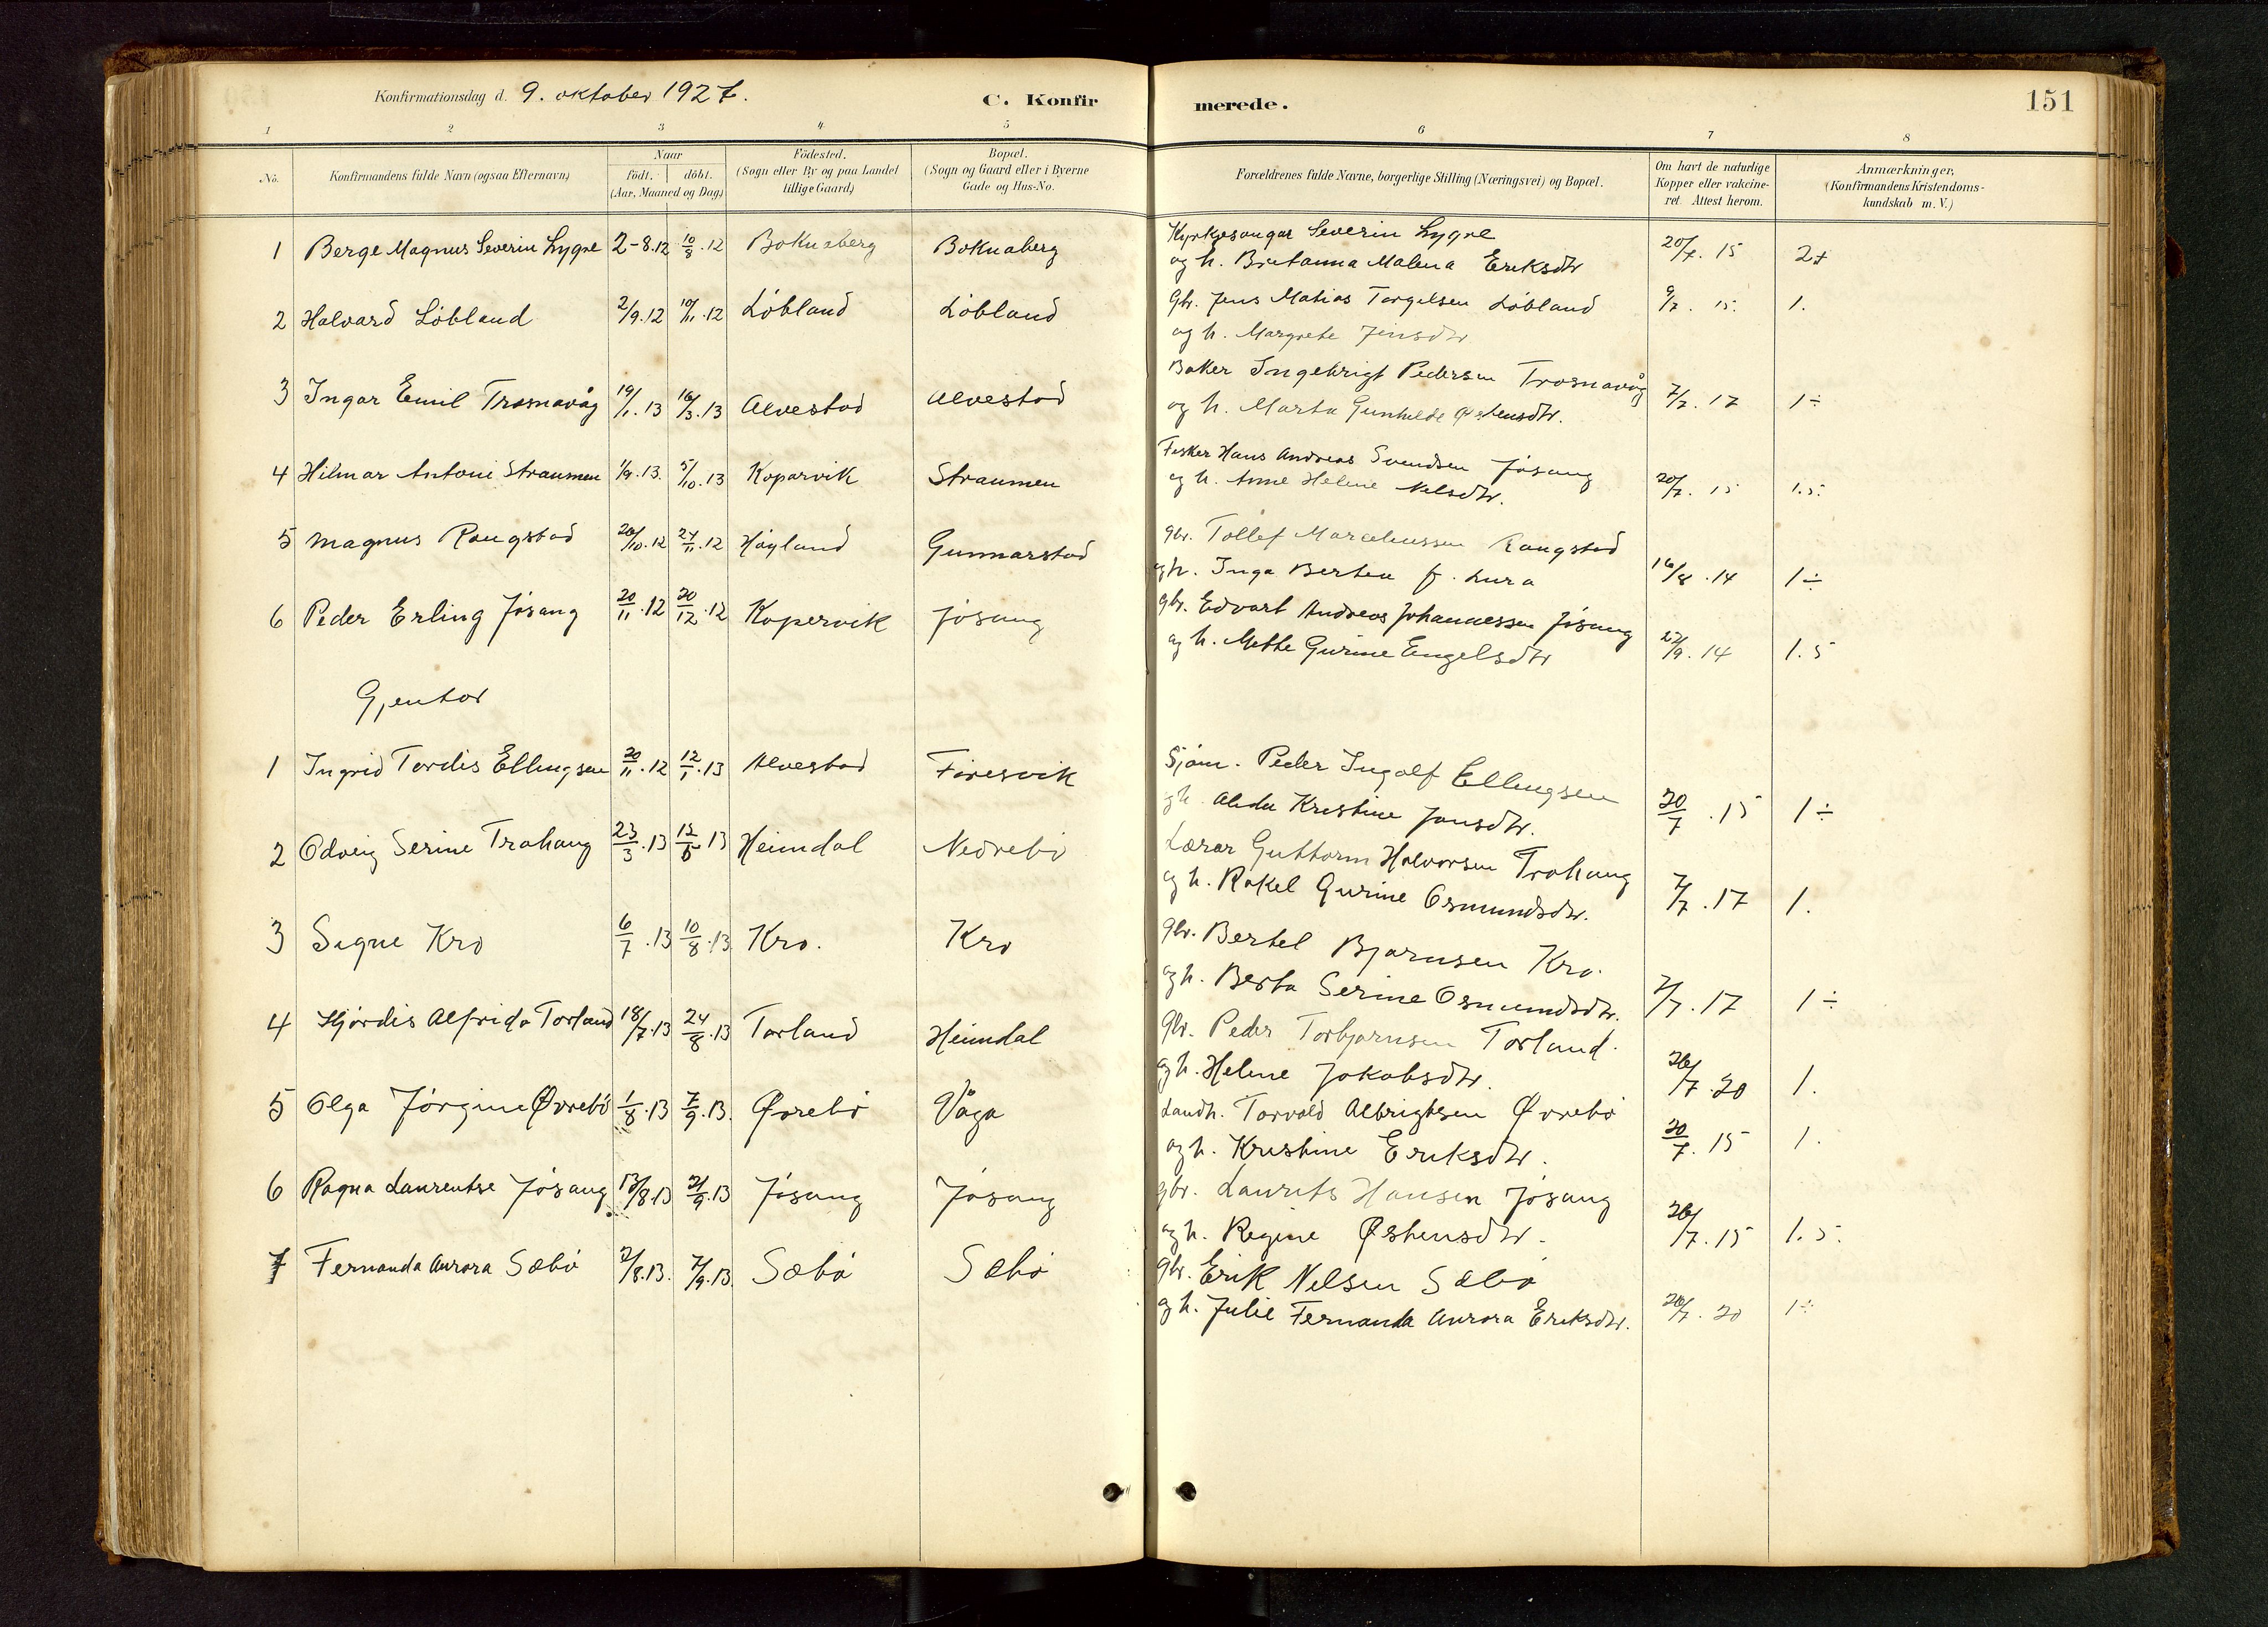 Konfirmationsdag d. 9. oktober 1927. C. Konfirmerede. 151
1 2 3 4 5 6 7 8
No. Konfirmandens fulde Navn (ogsaa Efternavn) Naar födt. döbt. (Aar, Maaned og Dag) Födested. (Sogn eller By og paa Landet tillige Gaard) Bopæl. (Sogn og Gaard eller i Byerne Gade og Hus-No. Forældrenes fulde Navne, borgerlige Stilling (Næringsvei) og Bopæl. Om havt de naturlige Kopper eller vakcineret. Attest herom. Anmærkninger, (Konfirmandens Kristendomskundskab m. V.)
1 Berge Magnus Severin Lygre 2-8.12 10/8.12 Boknaberg Boknaberg Kyrkjesongar Severin Lygre 20/7.15 2+
og h. Britanna Malena Eriksdtr
2 Halvard Löbland 2/9.12 10/11.12 Löbland Löbland Gbr. Jens Matias Torgelsen Löbland 9/7.15. 1.
og h. Margrete Jensdtr.
3 Ingar Emil Trosnavåg 19/1.13 16/3.13 Alvestad Alvestad Baker Ingebrigt Pedersen Trosnavåg 7/7.17 1÷
og h. Marta Gunhilde Østensdtr.
4 Hilmar Antoni Straumen 1/9.13. 5/10.13 Koparvik Straumen Fisker Hans Andreas Svendsen Jösang 20/7.15 1.5.
og h. Anne Helene Nelsdtr.
5 Magnus Rangstad 20/10.12 24/11.12 Höyland Gunnarstad gbr. Tollef Marceliussen Rangstad 16/8.14 1÷
og h. Inga Bertea f. Lura
6 Peder Erling Jösang 20/11.12 20/12.12 Kopervik Jösang gbr. Edvart Andreas Johannessen Jösang 27/9.14 1.5
og h. Mette Gurine Engelsdtr
Gjentor
1 Ingrid Tordis Ellingsen 20/11.12 12/1.13 Alvestad Föresvik Sjöm. Peder Ingolf Ellingsen 20/7.15 1÷
og h. Alida Kristine Jonsdtr.
2 Odveig Serine Trohaug 23/3.13 12/5.13 Heimdal Nedrebö Lærar Guttorm Halvorsen Trohaug 7/7.17 1.
og h. Rakel Gurine Osmundsdtr.
3 Signe Kro 6/7.13 10/8.13 Kro. Kro gbr. Bertel Bjørnsen Kro. 7/7.17 1÷
og h. Berta Serine Osmundsdtr.
4 Hjördis Alfrida Torland 18/7.13 24/8.13 Torland Heimdal gbr. Peder Torbjørnsen Torland. 26/7.20 1.
og h. Helene Jakobsdtr.
5 Olga Jörgine Øvrebö 1/8.13 7/9.13. Øvrebö Våga Landh. Torvald Albrigtsen Øvrebö 20/7.15 1.
og h. Kristine Eriksdtr.
6 Ragna Laurentse Jösang 13/8.13 21/9.13 Jösang Jösang gbr. Laurits Hansen Jösang 26/7.15 1.5.
og h. Regine Østensdtr.
7 Fernanda Aurora Sæbö 2/8.13. 7/9.13. Sæbö Sæbö gbr. Erik Nelsen Sæbö 26/7.20 1÷
og h. Julie Fernanda Aurora Eriksdtr.